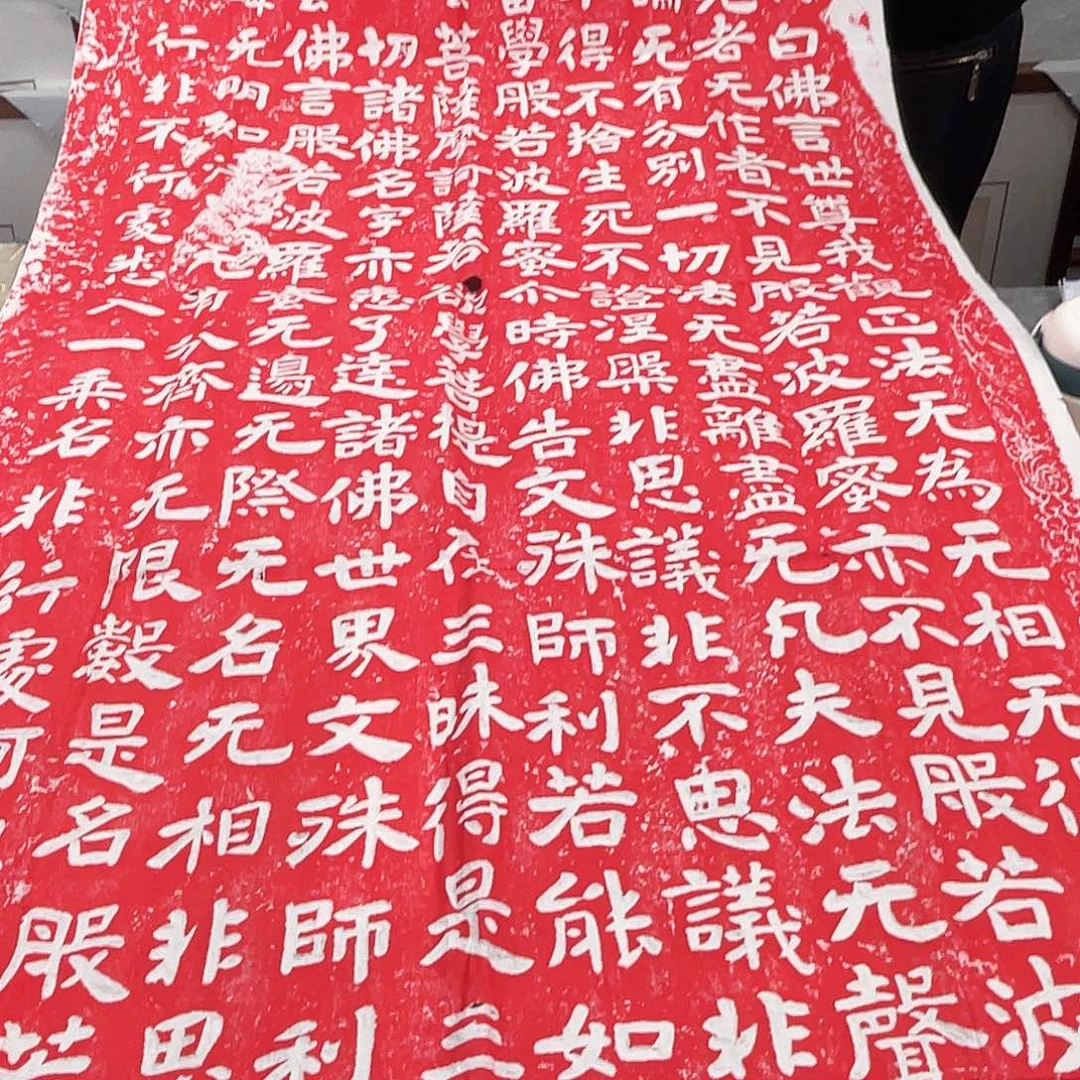 白佛言世尊我觀正法无為无相无得
者无作者不見般若波羅蜜亦不見般若波
无有分別一切法无盡離盡无凡夫法无聲
得不捨生死不證涅槃非思議非不思議非
當學般若波羅蜜尒時佛告文殊師利若能如
菩薩摩訶薩若欲學菩提自在三昧得是三
切諸佛名字亦悉了達諸佛世界文殊師利
佛言般若波羅蜜无邊无際无名无相非思
无明如无有分齊亦无限數是名般若
行非不行處悉入一乘名非行處何